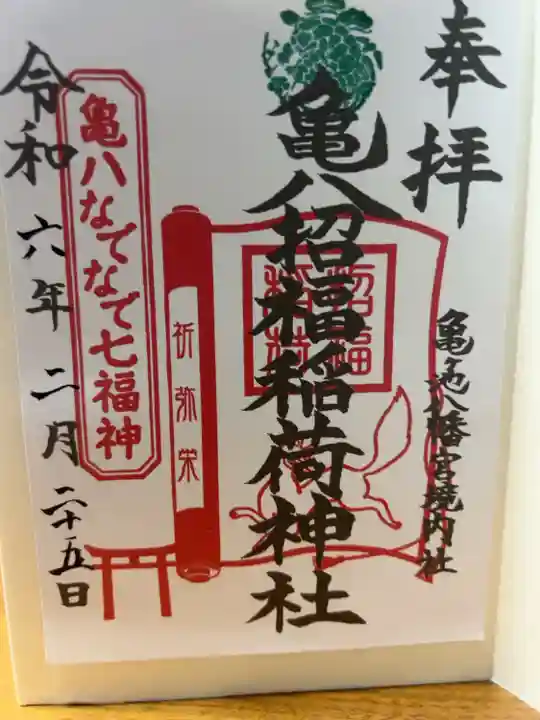 奉拝
亀池八幡宮境内社
亀八招福稲荷神社
招福
祈弥栄
亀八なでなで七福神
令和六年二月二十五日